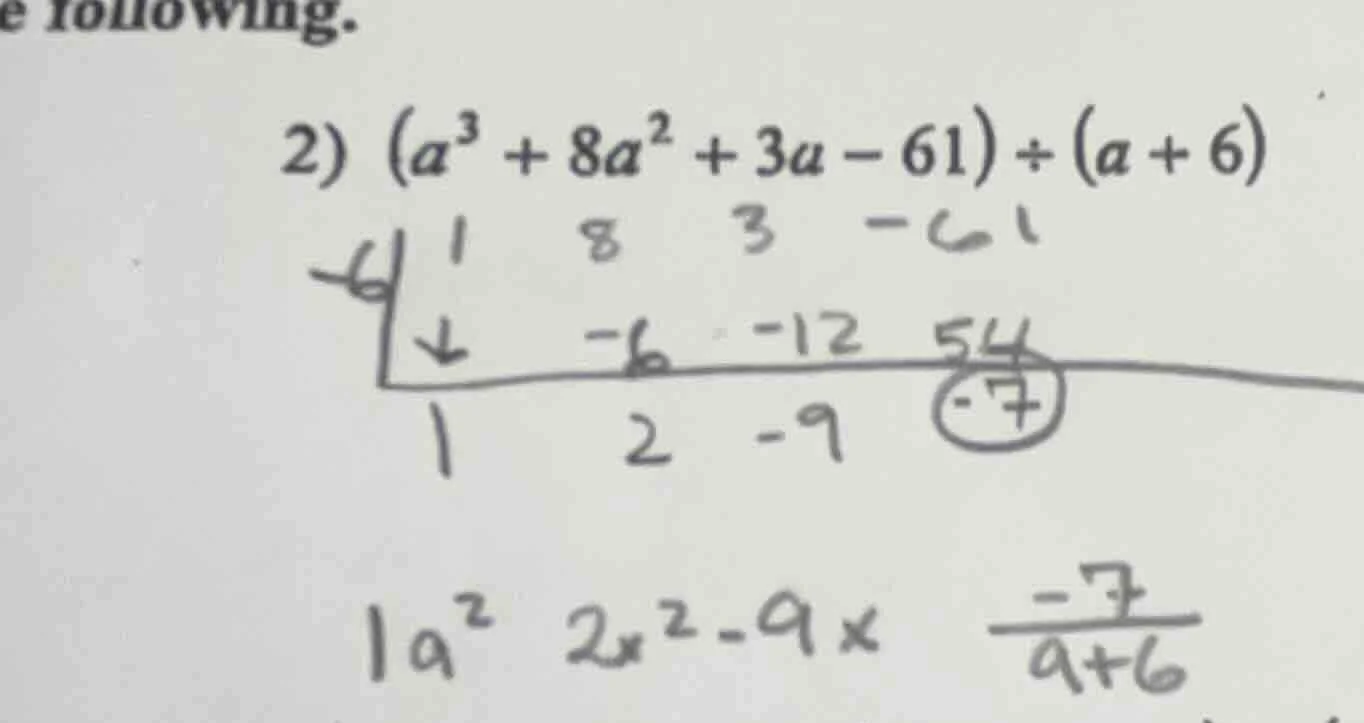 following.
2) (a³ + 8a² + 3a − 61) ÷ (a + 6)
-6 | 1 8 3 -61
↓ -6 -12 54
1 2 -9 -7
1a² 2x² - 9x -7/a+6